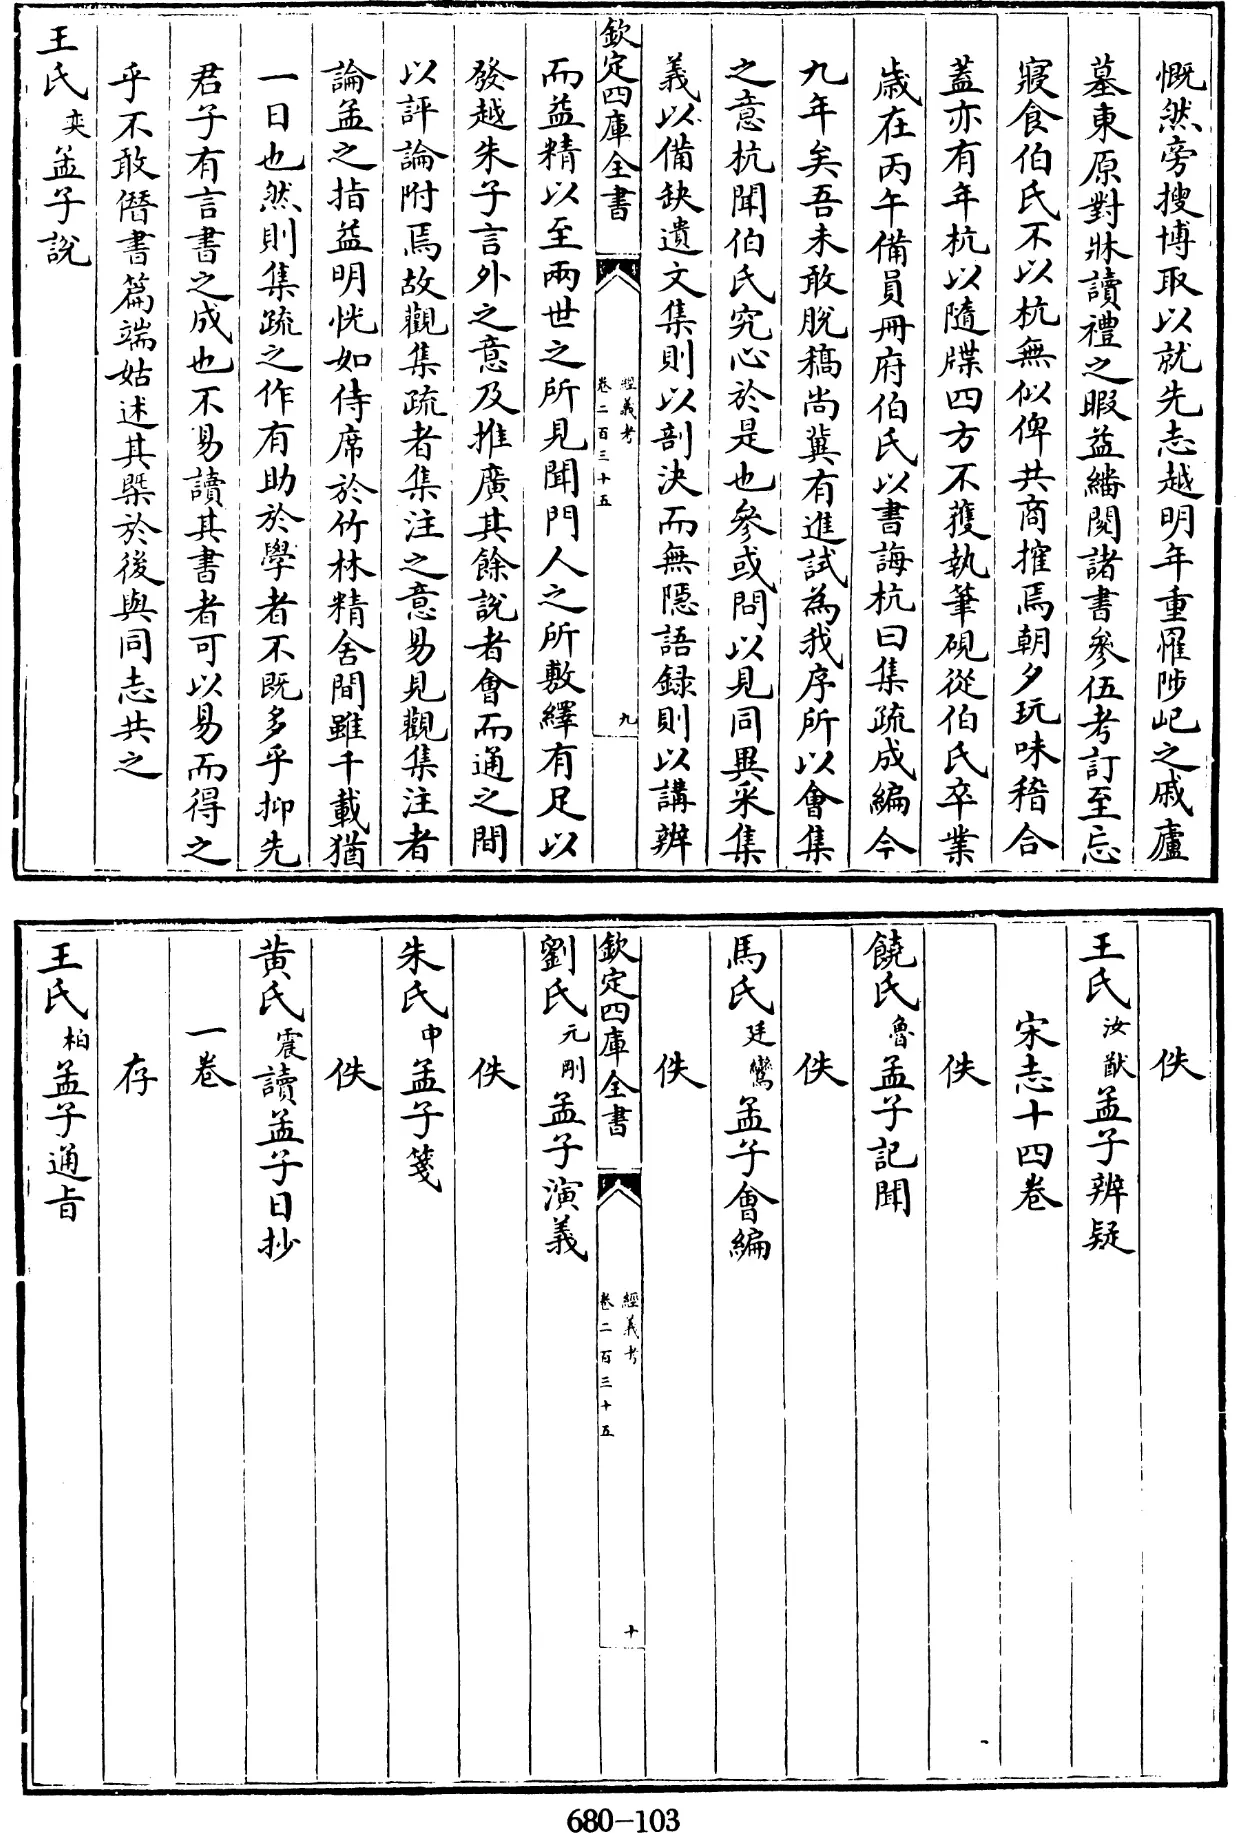 慨然旁搜博取以就先志越明年重罹陟屺之戚廬
墓東原對牀讀禮之暇益繙閱諸書參伍考訂至忘
寢食伯氏不以杭無似俾共商搉焉朝夕玩味稽合
蓋亦有年杭以隨牒四方不獲執筆硯從伯氏卒業
歲在丙午備員冊府伯氏以書誨杭曰集疏成編今
九年矣吾未敢脫稿尚冀有進試為我序所以會集
之意杭聞伯氏究心於是也參或問以見同異采集
義以備缺遺文集則以剖決而無隱語録則以講辨
欽定四庫全書
經義考
卷二百三十五
九
而益精以至兩世之所見聞門人之所敷繹有足以
發越朱子言外之意及推廣其餘說者會而通之間
以評論附焉故觀集疏者集注之意易見觀集注者
論孟之指益明恍如侍席於竹林精舍間雖千載猶
一日也然則集疏之作有助於學者不既多乎抑先
君子有言書之成也不易讀其書者可以易而得之
乎不敢僭書篇端姑述其槩於後與同志共之
王氏奕孟子說
佚
王氏汝猷孟子辨疑
宋志十四卷
佚
饒氏魯孟子記聞
佚
馬氏廷鸞孟子會編
佚
欽定四庫全書
經義考
卷二百三十五
十
劉氏元剛孟子演義
佚
朱氏申孟子箋
佚
黄氏震讀孟子日抄
一卷
存
王氏柏孟子通旨
680-103